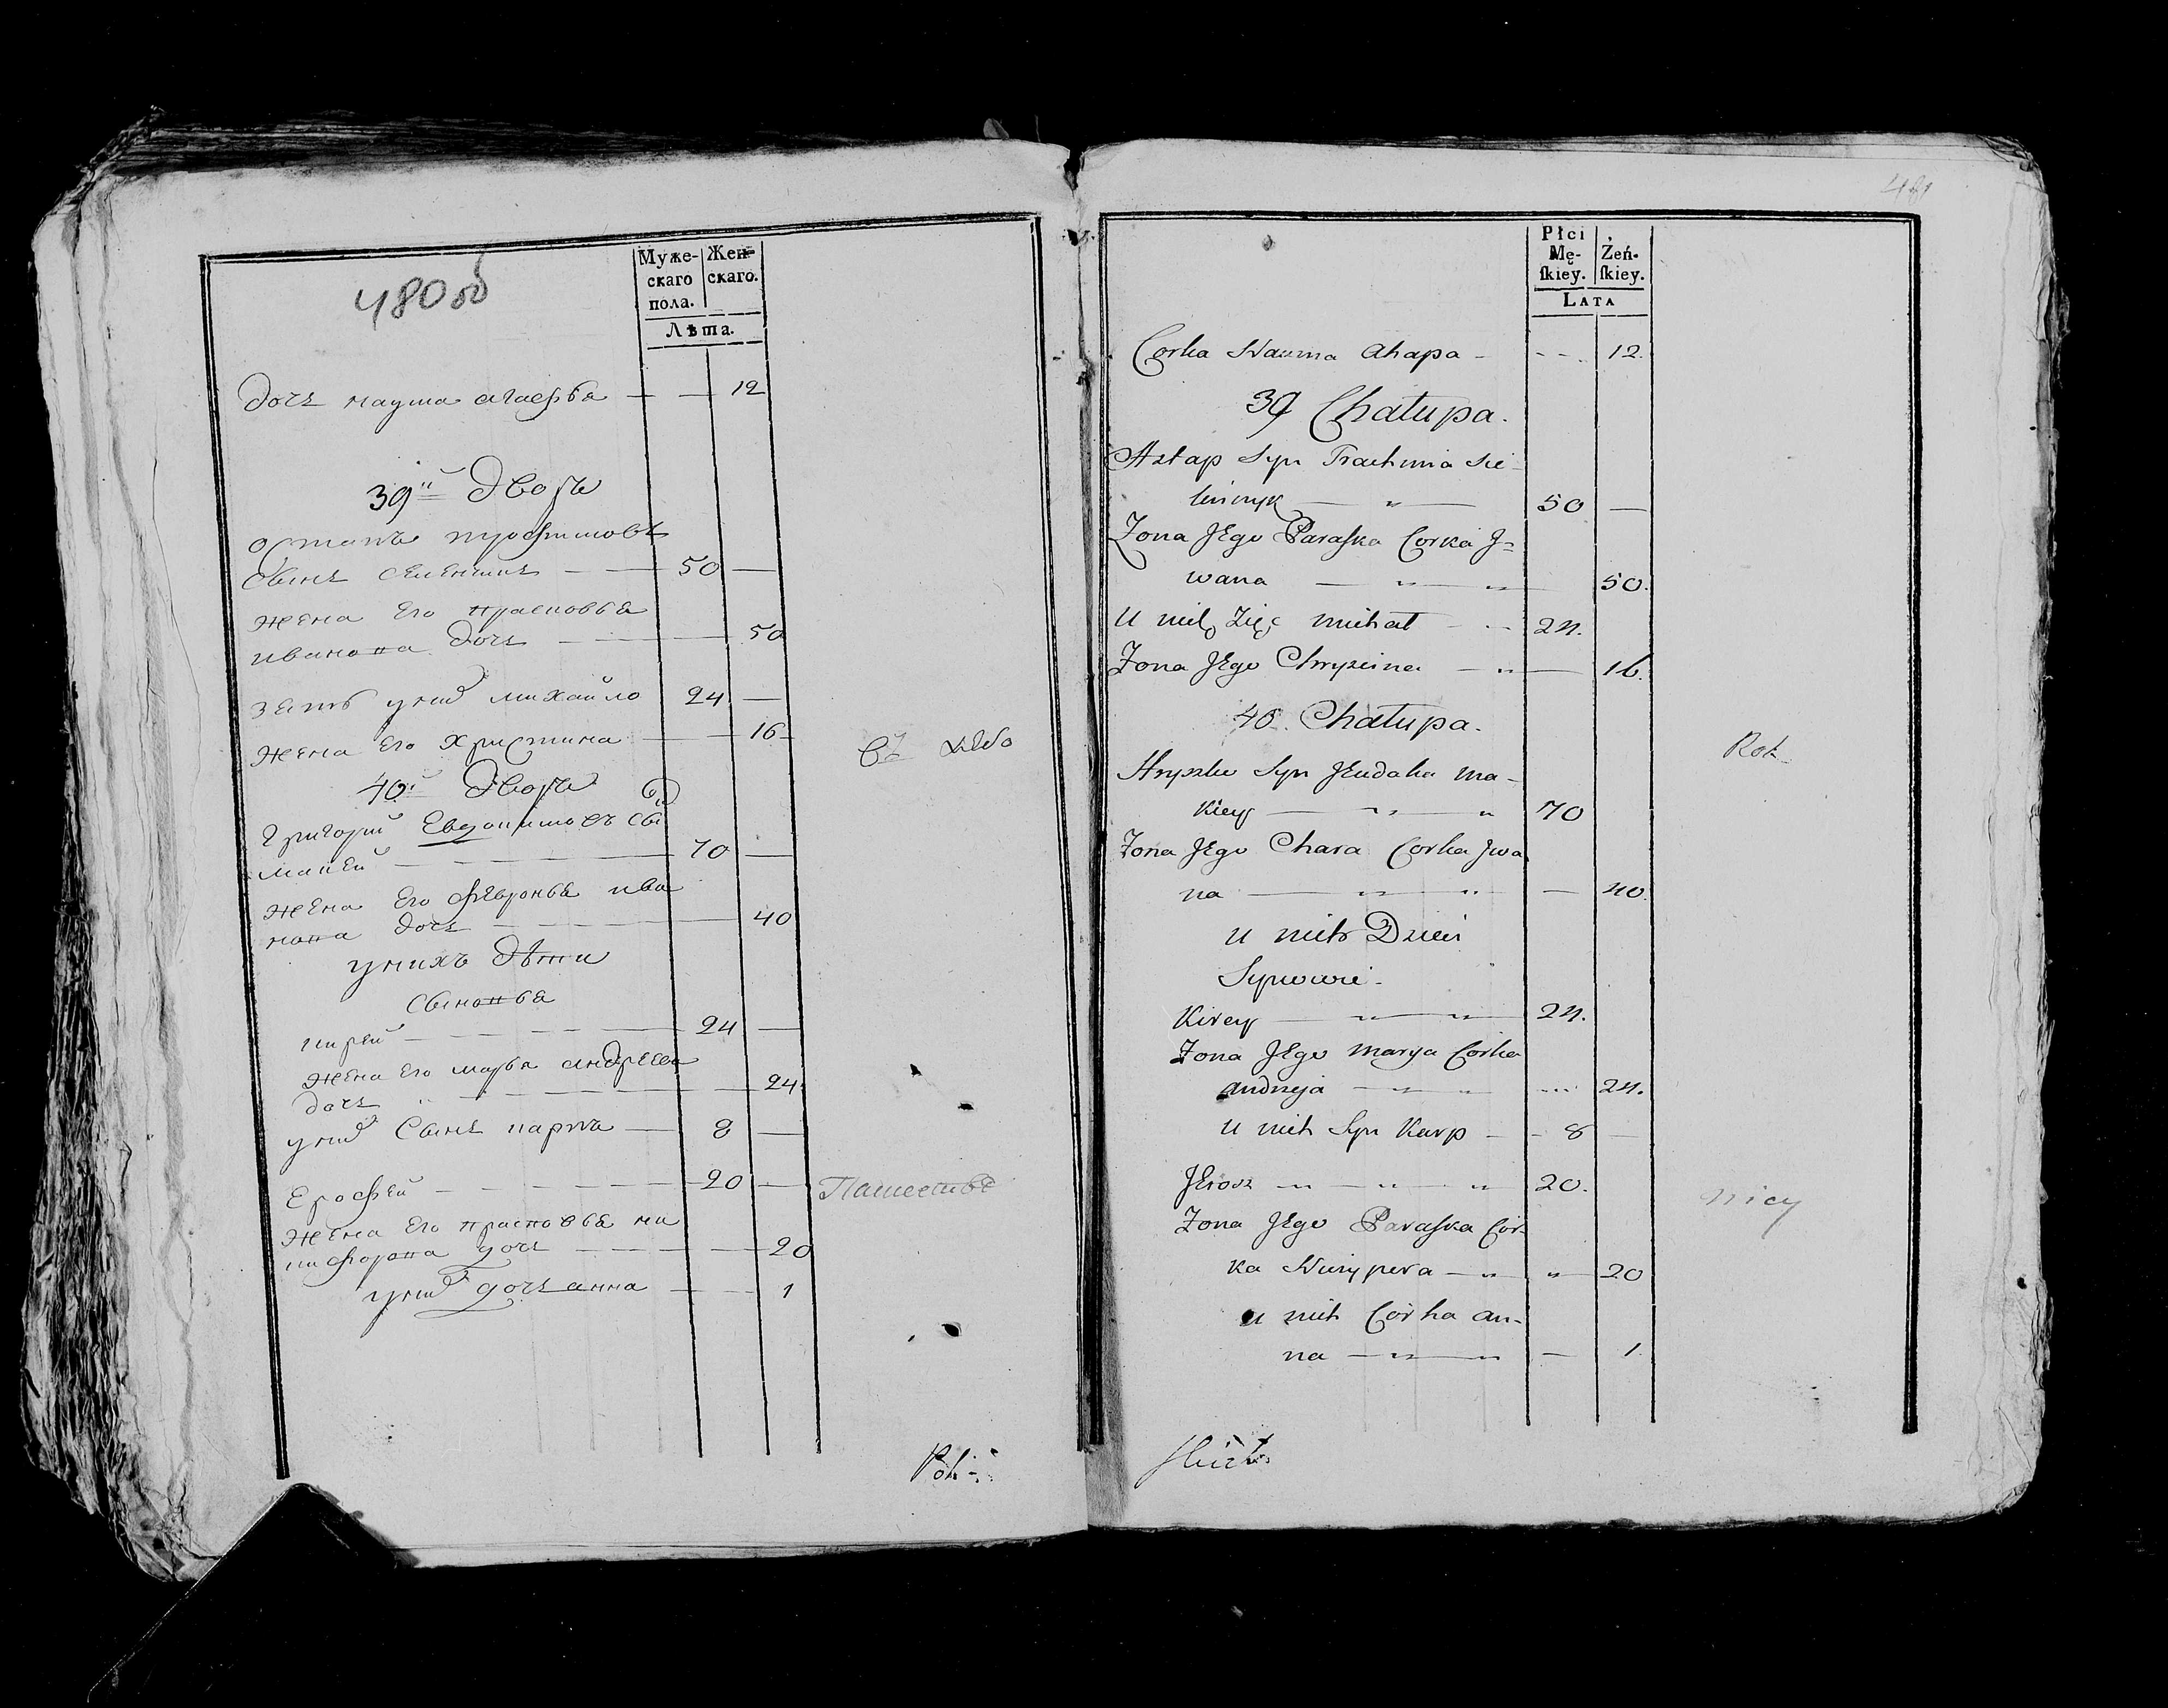 480 об
Муже-
скаго
пола.
Жен-
скаго.
Лѣта.
дочь наума агафья — — 12
39й Дворъ
остапъ трофимовъ
сынъ селенчикъ — — 50 —
жена его прасковья
иванова дочь — — — 50
зять у них михайло 24 —
жена его христина — — 16
40й Дворъ
григорий Евдокимовъ сы
макей — — — 70 —
жена его февронья ива
нова дочь — — — 40
у нихъ дѣти
сыновья
кирей — — — 24 —
жена его марья андреева
дочь — — — 24
у них сынъ карпъ — 8 —
Ерофей — — — 20 —
жена его прасковья ни
кифорова дочь — — — 20
у них дочь анна — — 1
Пашествѣ
481
Płci
Mę-
ſkiey.
Żeń-
ſkiey.
LATA
Corka Nauma Ahapa - - - - 12.
39 Chałupa.
Astap Syn Trachima Sie-
lińczyk — „ — 50 —
Zona JEgo Paraſka Corka J=
wana — „ — „ — 50.
U nich Zięć Michał - - 24.
Zona JEgo Chrysina — „ — 16.
40. Chałupa.
Hryszko Syn JEudoka Ma-
kiey — „ — „ 70
Rok
Zona JEgo Chara Corka Jwa
na — „ — „ — 40.
u nich Dzieci
Synowie.
Kirey — „ — „ — 24.
Zona JEgo Marya Corka
Andrzeja — „ — - - - 24.
U nich Syn Karp — - 8 —
JErosz „ — „ — „ 20.
Zona JEgo Paraſka Cór-
ka Niczypera — „ „ 20
u nich Córka An-
na — „ — „ — 1.